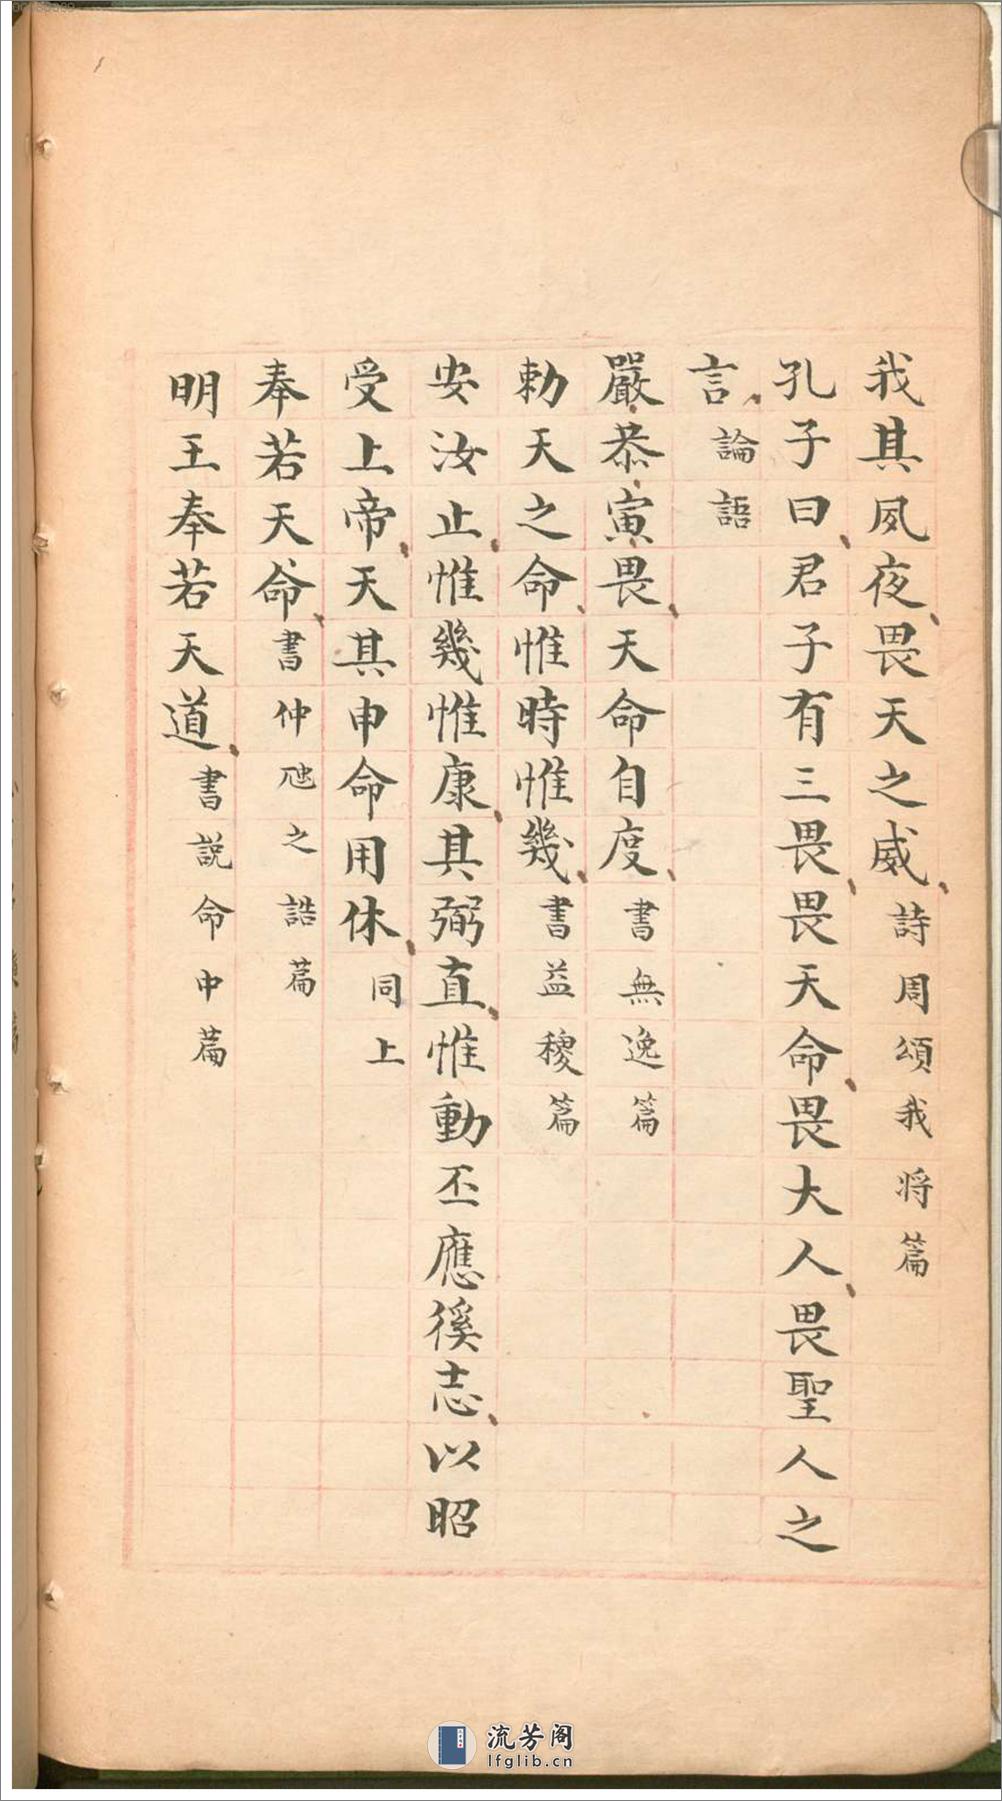 我其夙夜、畏天之威、詩周頌我將篇
孔子曰、君子有三畏、畏天命、畏大人、畏聖人之
言、論語
嚴恭寅畏、天命自度、書無逸篇
勅天之命、惟時惟幾、書益稷篇
安汝止、惟幾惟康、其弼直、惟動丕應徯志、以昭
受上帝、天其申命用休、同上
奉若天命、書仲虺之誥篇
明王奉若天道、書説命中篇
流芳阁
lfglib.cn